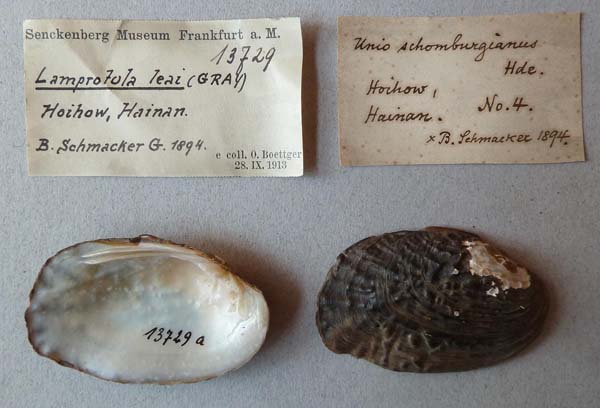 Senckenberg Museum Frankfurt a. M.
13729
Lamprotula leai (GRAY)
Hoihow, Hainan.
B. Schmacker G. 1894.
e coll. O. Boettger
28. IX. 1913
Unio schomburgianus
Hde.
Hoihow,
Hainan. No. 4.
× B. Schmacker 1894.
13729 a